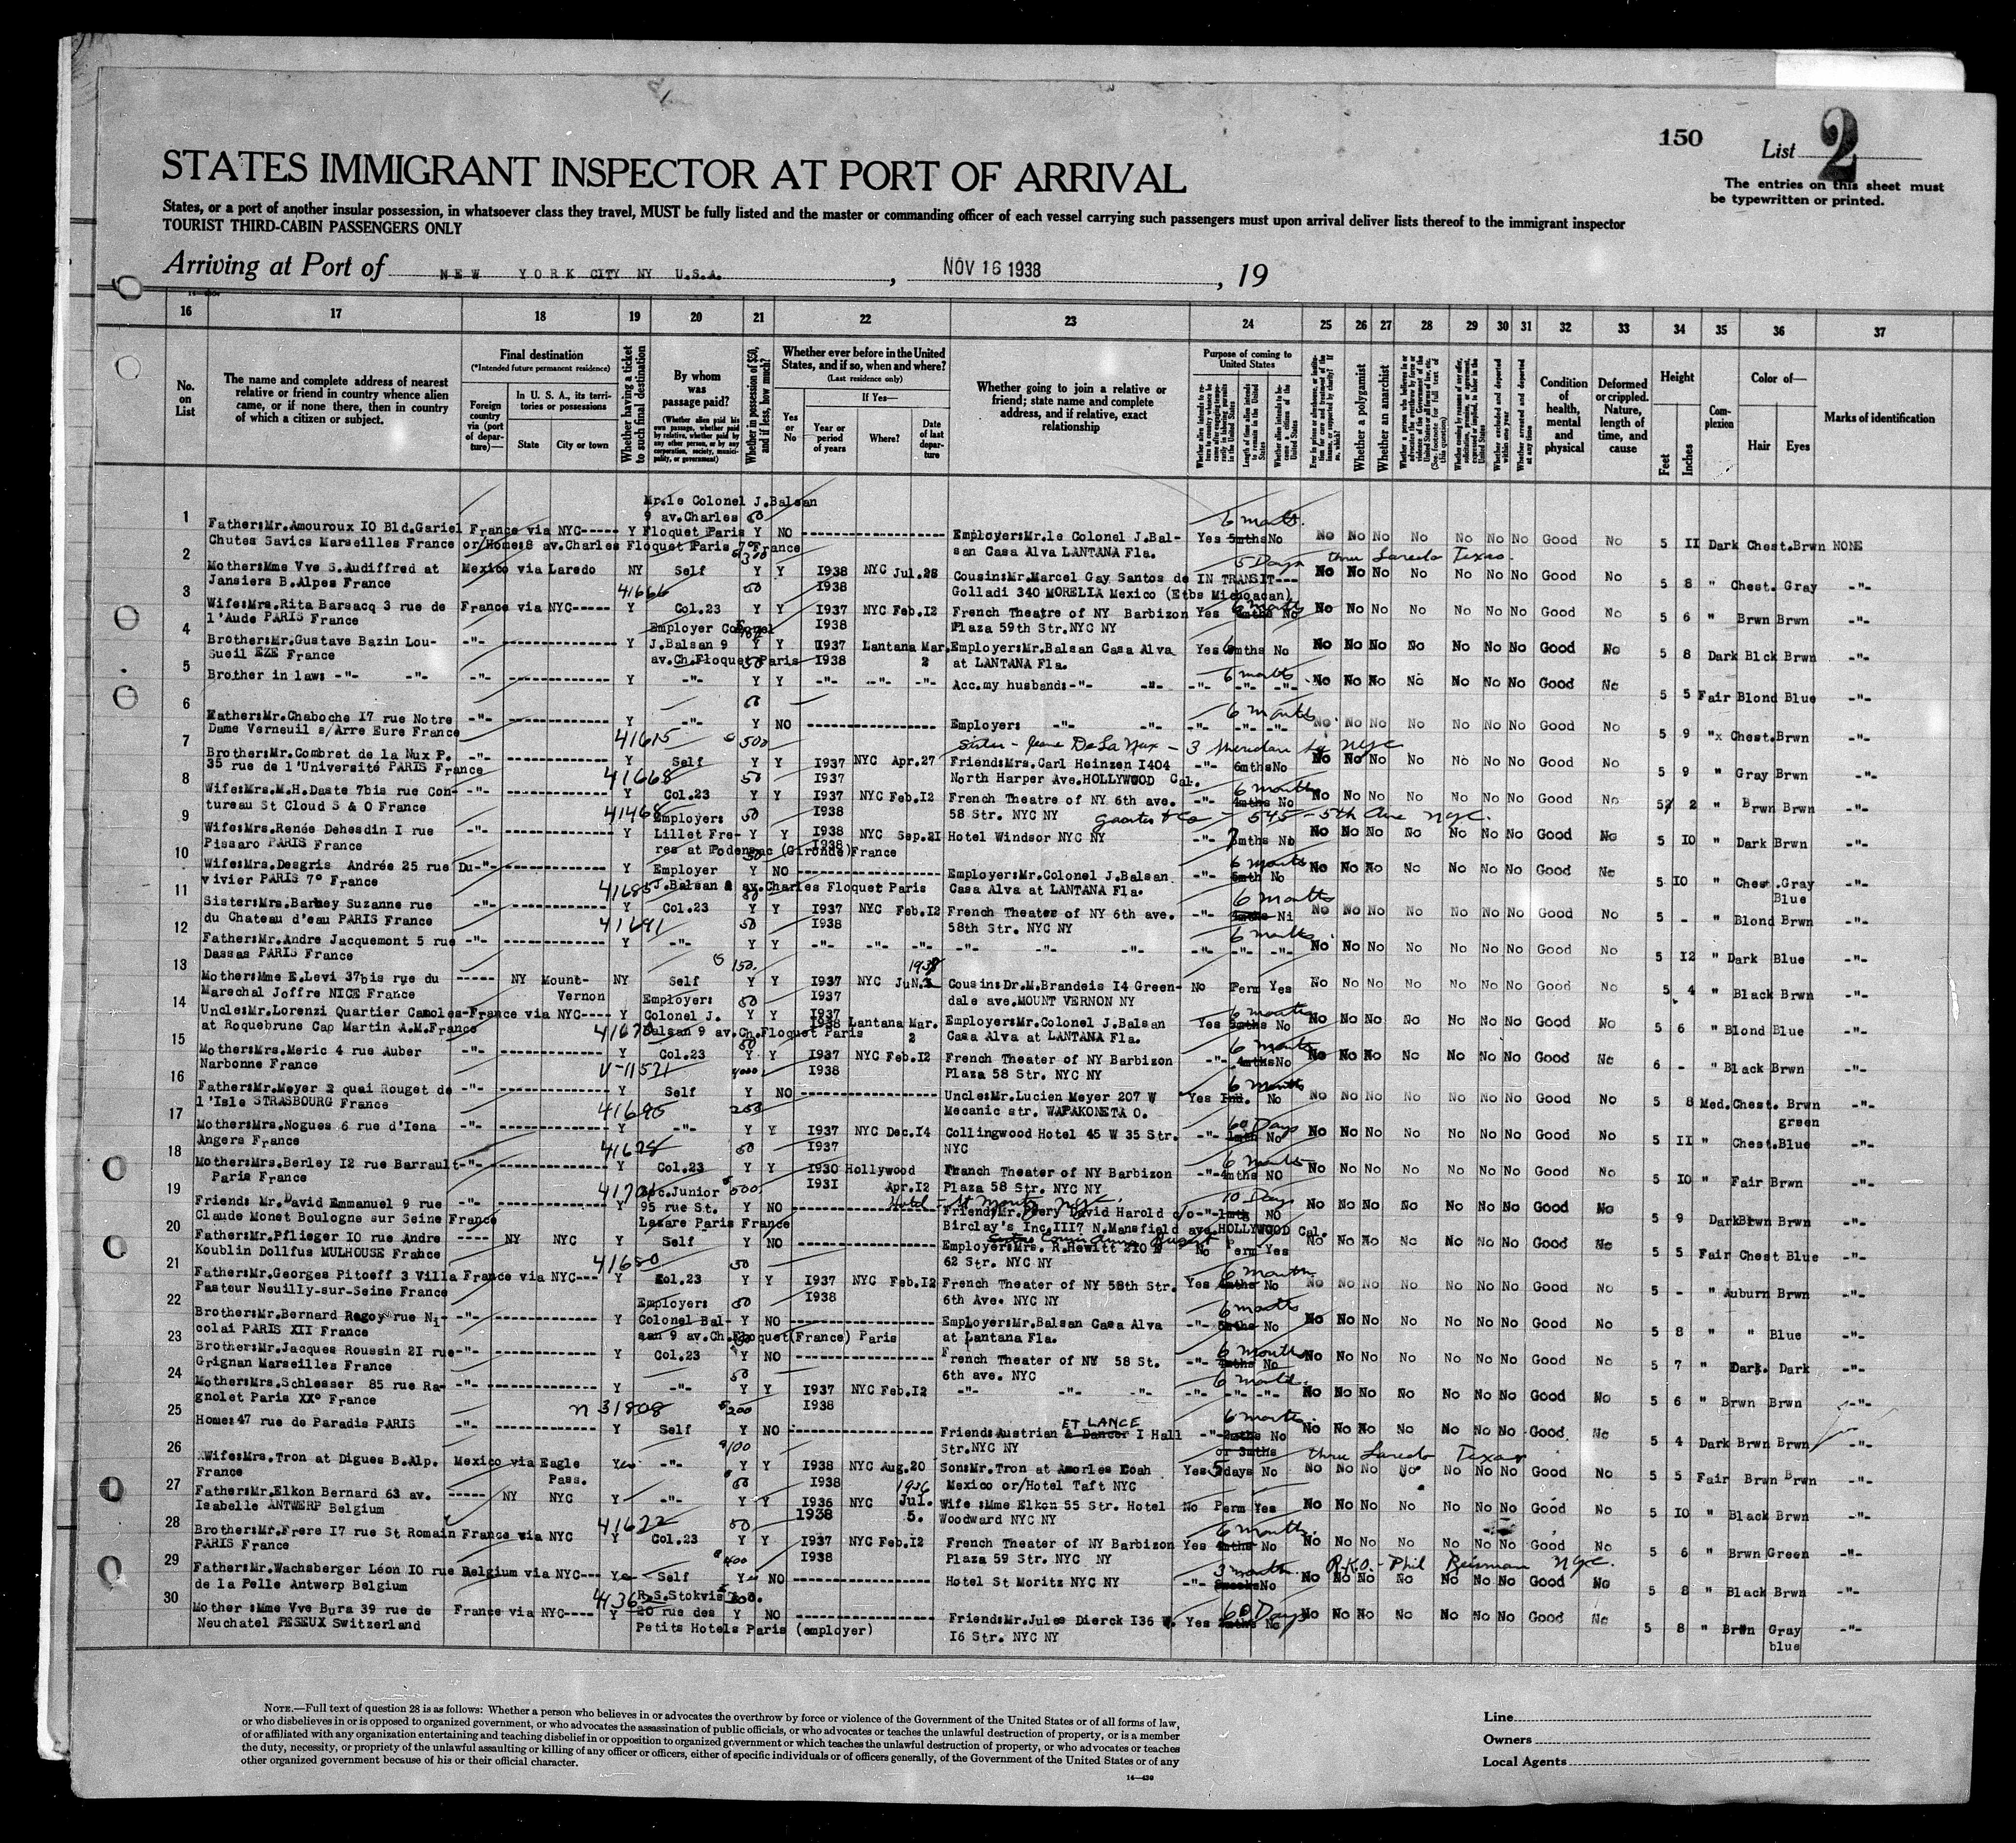 150
List 2
STATES IMMIGRANT INSPECTOR AT PORT OF ARRIVAL
The entries on this sheet must
be typewritten or printed.
States, or a port of another insular possession, in whatsoever class they travel, MUST be fully listed and the master or commanding officer of each vessel carrying such passengers must upon arrival deliver lists thereof to the immigrant inspector
TOURIST THIRD-CABIN PASSENGERS ONLY
Arriving at Port of NEW YORK CITY NY U.S.A. , NOV 16 1938 , 19
16 17 18 19 20 21 22 23 24 25 26 27 28 29 30 31 32 33 34 35 36 37
No. on List
The name and complete address of nearest relative or friend in country whence alien came, or if none there, then in country of which a citizen or subject.
Final destination
(*Intended future permanent residence)
Foreign country via (port of departure)—
In U. S. A., its territories or possessions
State
City or town
Whether having a ticket to such final destination
By whom was passage paid?
(Whether alien paid his own passage, whether paid by relative, whether paid by any other person, or by any corporation, society, municipality, or government)
Whether in possession of $50, and if less, how much?
Whether ever before in the United States, and if so, when and where?
(Last residence only)
Yes or No
If Yes—
Year or period of years
Where?
Date of last departure
Whether going to join a relative or friend; state name and complete address, and if relative, exact relationship
Purpose of coming to United States
Whether a polygamist
Whether an anarchist
Condition of health, mental and physical
Deformed or crippled. Nature, length of time, and cause
Height
Feet
Inches
Complexion
Color of—
Hair
Eyes
Marks of identification
Mr.le Colonel J.Balsan
1 9 av.Charles 50 6 months
Father:Mr.Amouroux I0 Bld.Gariel France via NYC----- Y Floquet Paris Y NO Employer:Mr.le Colonel J.Bal- Yes 5mths No No No No No No No No Good No 5 II Dark Chest.Brwn NONE
Chutes Savics Marseilles France or/Home:8 av.Charles Floquet Paris 7° France san Casa Alva LANTANA Fla.
2 300 5 Days thru Laredo Texas.
Mother:Mme Vve S.Audiffred at Mexico via Laredo NY Self Y Y I938 NYC Jul.28 Cousin:Mr.Marcel Gay Santos de IN TRANSIT--- No No No No No No No Good No 5 8 " Chest. Gray -"-
Jansiers B.Alpes France I938 Golladi 340 MORELIA Mexico (Etbs Michoacan)
3 41666 50 6 months
Wife:Mrs.Rita Barsacq 3 rue de France via NYC----- Y Col.23 Y Y I937 NYC Feb.I2 French Theatre of NY Barbizon Yes 4mths No No No No No No No No Good No 5 6 " Brwn Brwn -"-
l'Aude PARIS France I938 Plaza 59th Str.NYC NY
4 Employer Colonel
Brother:Mr.Gustave Bazin Lou- -"- Y J.Balsan 9 Y Y I937 Lantana Mar. Employer:Mr.Balsan Casa Alva Yes 6mths No No No No No No No No Good No 5 8 Dark Blck Brwn -"-
Sueil EZE France av.Ch.Floquet Paris I938 2 at LANTANA Fla.
5 6 months
Brother in law: -"- -"- -"- Y -"- Y Y -"- -"- -"- Acc.my husband: -"- -"- -"- -"- -"- No No No No No No No Good No 5 5 Fair Blond Blue -"-
6 50 6 months
Father:Mr.Chaboche I7 rue Notre -"- Y -"- Y NO Employer: -"- -"- -"- -"- -"- No No No No No No No Good No 5 9 "x Chest.Brwn -"-
Dame Verneuil s/Arre Eure France
7 41615 500 Sister - Jeane De La Nux - 3 Sheridan Sq NYC
Brother:Mr.Combret de la Nux P. -"- Y Self Y Y I937 NYC Apr.27 Friend:Mrs.Carl Heinzen I404 -"- 6mths No No No No No No No No Good No 5 9 " Gray Brwn -"-
35 rue de l'Université PARIS France I937 North Harper Ave.HOLLYWOOD Cal.
8 41668 50 6 months
Wife:Mrs.M.H.Daste 7bis rue Con- -"- Y Col.23 Y Y I937 NYC Feb.I2 French Theatre of NY 6th ave. -"- 4mths No No No No No No No No Good No 2 " Brwn Brwn -"-
tureau St Cloud S & O France I938 58 Str. NYC NY
9 41468 Employer: 50 545 - 5th Ave NYC.
Wife:Mrs.Renée Dehesdin I rue -"- Y Lillet Fre- Y Y I938 NYC Sep.2I Hotel Windsor NYC NY -"- No No No No No No No No Good No 5 I0 " Dark Brwn -"-
Pissaro PARIS France res at Podensac (Gironde)France I938
10 50 6 months
Wife:Mrs.Desgris Andrée 25 rue Du -"- Y Employer Y NO Employer:Mr.Colonel J.Balsan -"- 5mth No No No No No No No No Good No 5 I0 " Chest.Gray Blue -"-
vivier PARIS 7° France J.Balsan 9 av.Charles Floquet Paris Casa Alva at LANTANA Fla.
11 41685 50 6 months
Sister:Mrs.Barbey Suzanne rue -"- Y Col.23 Y Y I937 NYC Feb.I2 French Theater of NY 6th ave. -"- 4mths Ni No No No No No No No Good No 5 - " Blond Brwn -"-
du Chateau d'eau PARIS France I938 58th Str. NYC NY
12 41691 50 6 months
Father:Mr.Andre Jacquemont 5 rue -"- Y -"- Y Y -"- -"- -"- -"- -"- -"- -"- -"- -"- No No No No No No No Good No 5 I2 " Dark Blue -"-
Dassas PARIS France
13 150. 1938
Mother:Mme E.Levi 37bis rue du ----- NY Mount- NY Self Y Y I937 NYC JuN. Cousin:Dr.M.Brandeis I4 Green- No Perm Yes No No No No No No No Good No 5 4 " Black Brwn -"-
Marechal Joffre NICE France Vernon I937 dale ave.MOUNT VERNON NY
14 Employer: 50 6 months
Uncle:Mr.Lorenzi Quartier Camoles-France via NYC----- Y Colonel J. Y Y I937 Employer:Mr.Colonel J.Balsan Yes 5mths No No No No No No No No Good No 5 6 " Blond Blue -"-
at Roquebrune Cap Martin A.M.France Balsan 9 av.Ch.Floquet Paris I938 Lantana Mar. 2 Casa Alva at LANTANA Fla.
15 50 6 months
Mother:Mrs.Meric 4 rue Auber -"- Y Col.23 Y Y I937 NYC Feb.I2 French Theater of NY Barbizon -"- 4mths No No No No No No No No Good No 6 - " Black Brwn -"-
Narbonne France I938 Plaza 58 Str. NYC NY
16 V-11571 4000 6 months
Father:Mr.Meyer 2 quai Rouget de -"- Y Self Y NO Uncle:Mr.Lucien Meyer 207 W Yes Ind. No No No No No No No No Good No 5 8 Med.Chest. Brwn green -"-
l'Isle STRASBOURG France Mecanic str. WAPAKONETA O.
17 41690 60 Days
Mother:Mrs.Nogues 6 rue d'Iena -"- Y -"- Y Y I937 NYC Dec.I4 Collingwood Hotel 45 W 35 Str. -"- No No No No No No No No Good No 5 II " Chest.Blue -"-
Angers France I937 NYC
18 41678 50 6 months
Mother:Mrs.Berley I2 rue Barrault -"- Y Col.23 Y Y I930 Hollywood Franch Theater of NY Barbizon -"- 4mths NO No No No No No No No Good No 5 I0 " Fair Brwn -"-
Paris France I93I Apr.I2 Plaza 58 Str. NYC NY
19 41701 Soc.Junior 500. Hotel - St Moritz NYC. 10 Days
Friend: Mr.David Emmanuel 9 rue -"- Y 95 rue St. Y NO Friend:Mr. David Harold c/o -"- 1mth NO No No No No No No No Good No 5 9 Dark Brwn Brwn -"-
Claude Monet Boulogne sur Seine France Lazare Paris France Birclay's Inc.III7 N.Mansfield ave.HOLLYWOOD Cal.
20
Father:Mr.Pflieger I0 rue Andre ---- NY NYC Y Self Y NO Employer:Mrs. R.Hewitt 2I0 E No Perm Yes No No No No No No No Good No 5 5 Fair Chest Blue -"-
Koublin Dollfus MULHOUSE France 62 Str. NYC NY
21 41680 50 6 months
Father:Mr.Georges Pitoeff 3 Villa France via NYC--- Y Col.23 Y Y I937 NYC Feb.I2 French Theater of NY 58th Str. Yes 4mths No No No No No No No No Good No 5 - " Auburn Brwn -"-
Pasteur Neuilly-sur-Seine France I938 6th Ave. NYC NY
22 Employer: 50 6 months
Brother:Mr.Bernard Ragoy rue Ni- -"- Y Colonel Bal- Y NO Employer:Mr.Balsan Casa Alva -"- 5mths No No No No No No No No Good No 5 8 " " Blue -"-
colai PARIS XII France san 9 av.Ch.Floquet(France) Paris at Lantana Fla.
23 6 months
Brother:Mr.Jacques Roussin 2I rue -"- Y Col.23 Y NO French Theater of NY 58 St. -"- 4mths No No No No No No No No Good No 5 7 " Dark. Dark -"-
Grignan Marseilles France 6th ave. NYC
24 50 6 months
Mother:Mrs.Schlesser 85 rue Ra- -"- Y -"- Y Y I937 NYC Feb.I2 -"- -"- -"- -"- -"- -"- No No No No No No No Good No 5 6 " Brwn Brwn -"-
gnolet Paris XX° France I938
25 n 31808 200 ET LANCE 6 months
Home:47 rue de Paradis PARIS -"- Y Self Y NO Friend:Austrian & Dancer I Hall -"- 2mths No No No No No No No No Good No 5 4 Dark Brwn Brwn -"-
Str.NYC NY or 3mths
26 100 thru Laredo Texas
Wife:Mrs.Tron at Digues B.Alp. Mexico via Eagle Yes -"- Y Y I938 NYC Aug.20 Son:Mr.Tron at Amorles Coah Yes 5 days No No No No No No No No Good No 5 5 Fair Brwn Brwn -"-
France Pass. I938 Mexico or/Hotel Taft NYC
27 60 1936
Father:Mr.Elkon Bernard 63 av. ----- NY NYC Y -"- Y Y I936 NYC Jul. Wife :Mme Elkon 55 Str. Hotel No Perm Yes No No No No No No No Good No 5 I0 " Black Brwn -"-
Isabelle ANTWERP Belgium 1938 5. Woodward NYC NY
28 41622 50 6 months
Brother:Mr.Frere I7 rue St Romain France via NYC Y Col.23 Y Y I937 NYC Feb.I2 French Theater of NY Barbizon Yes 4mths No No No No No No No No Good No 5 6 " Brwn Green -"-
PARIS France I938 Plaza 59 Str. NYC NY
29 400 3 months R.K.O. - Phil Reisman NYC.
Father:Mr.Wachsberger Léon I0 rue Belgium via NYC--- Self NO Hotel St Moritz NYC NY -"- No No No No No No No No Good No 5 8 " Black Brwn -"-
de la Pelle Antwerp Belgium
30 R.S.Stokvis 60 Days
Mother :Mme Vve Bura 39 rue de France via NYC---- Y 20 rue des Y NO Friend:Mr.Jules Dierck I36 W. Yes 2mths No No No No No No No No Good No 5 8 " Brwn Gray blue -"-
Neuchatel PESEUX Switzerland Petits Hotels Paris (employer) I6 Str. NYC NY
NOTE.—Full text of question 28 is as follows: Whether a person who believes in or advocates the overthrow by force or violence of the Government of the United States or of all forms of law,
or who disbelieves in or is opposed to organized government, or who advocates the assassination of public officials, or who advocates or teaches the unlawful destruction of property, or is a member
of or affiliated with any organization entertaining and teaching disbelief in or opposition to organized government or which teaches the unlawful destruction of property, or who advocates or teaches
the duty, necessity, or propriety of the unlawful assaulting or killing of any officer or officers, either of specific individuals or of officers generally, of the Government of the United States or of any
other organized government because of his or their official character.
14—430
Line
Owners
Local Agents